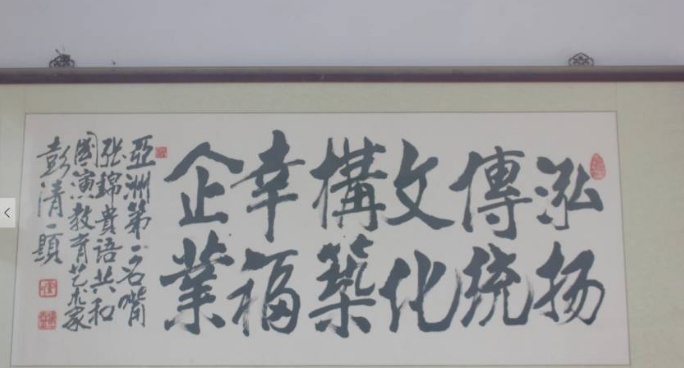 泓扬
傳统
文化
構築
幸福
企業
亞洲第一名嘴
张錦貴语共和
國演講教育艺术家
彭清一題